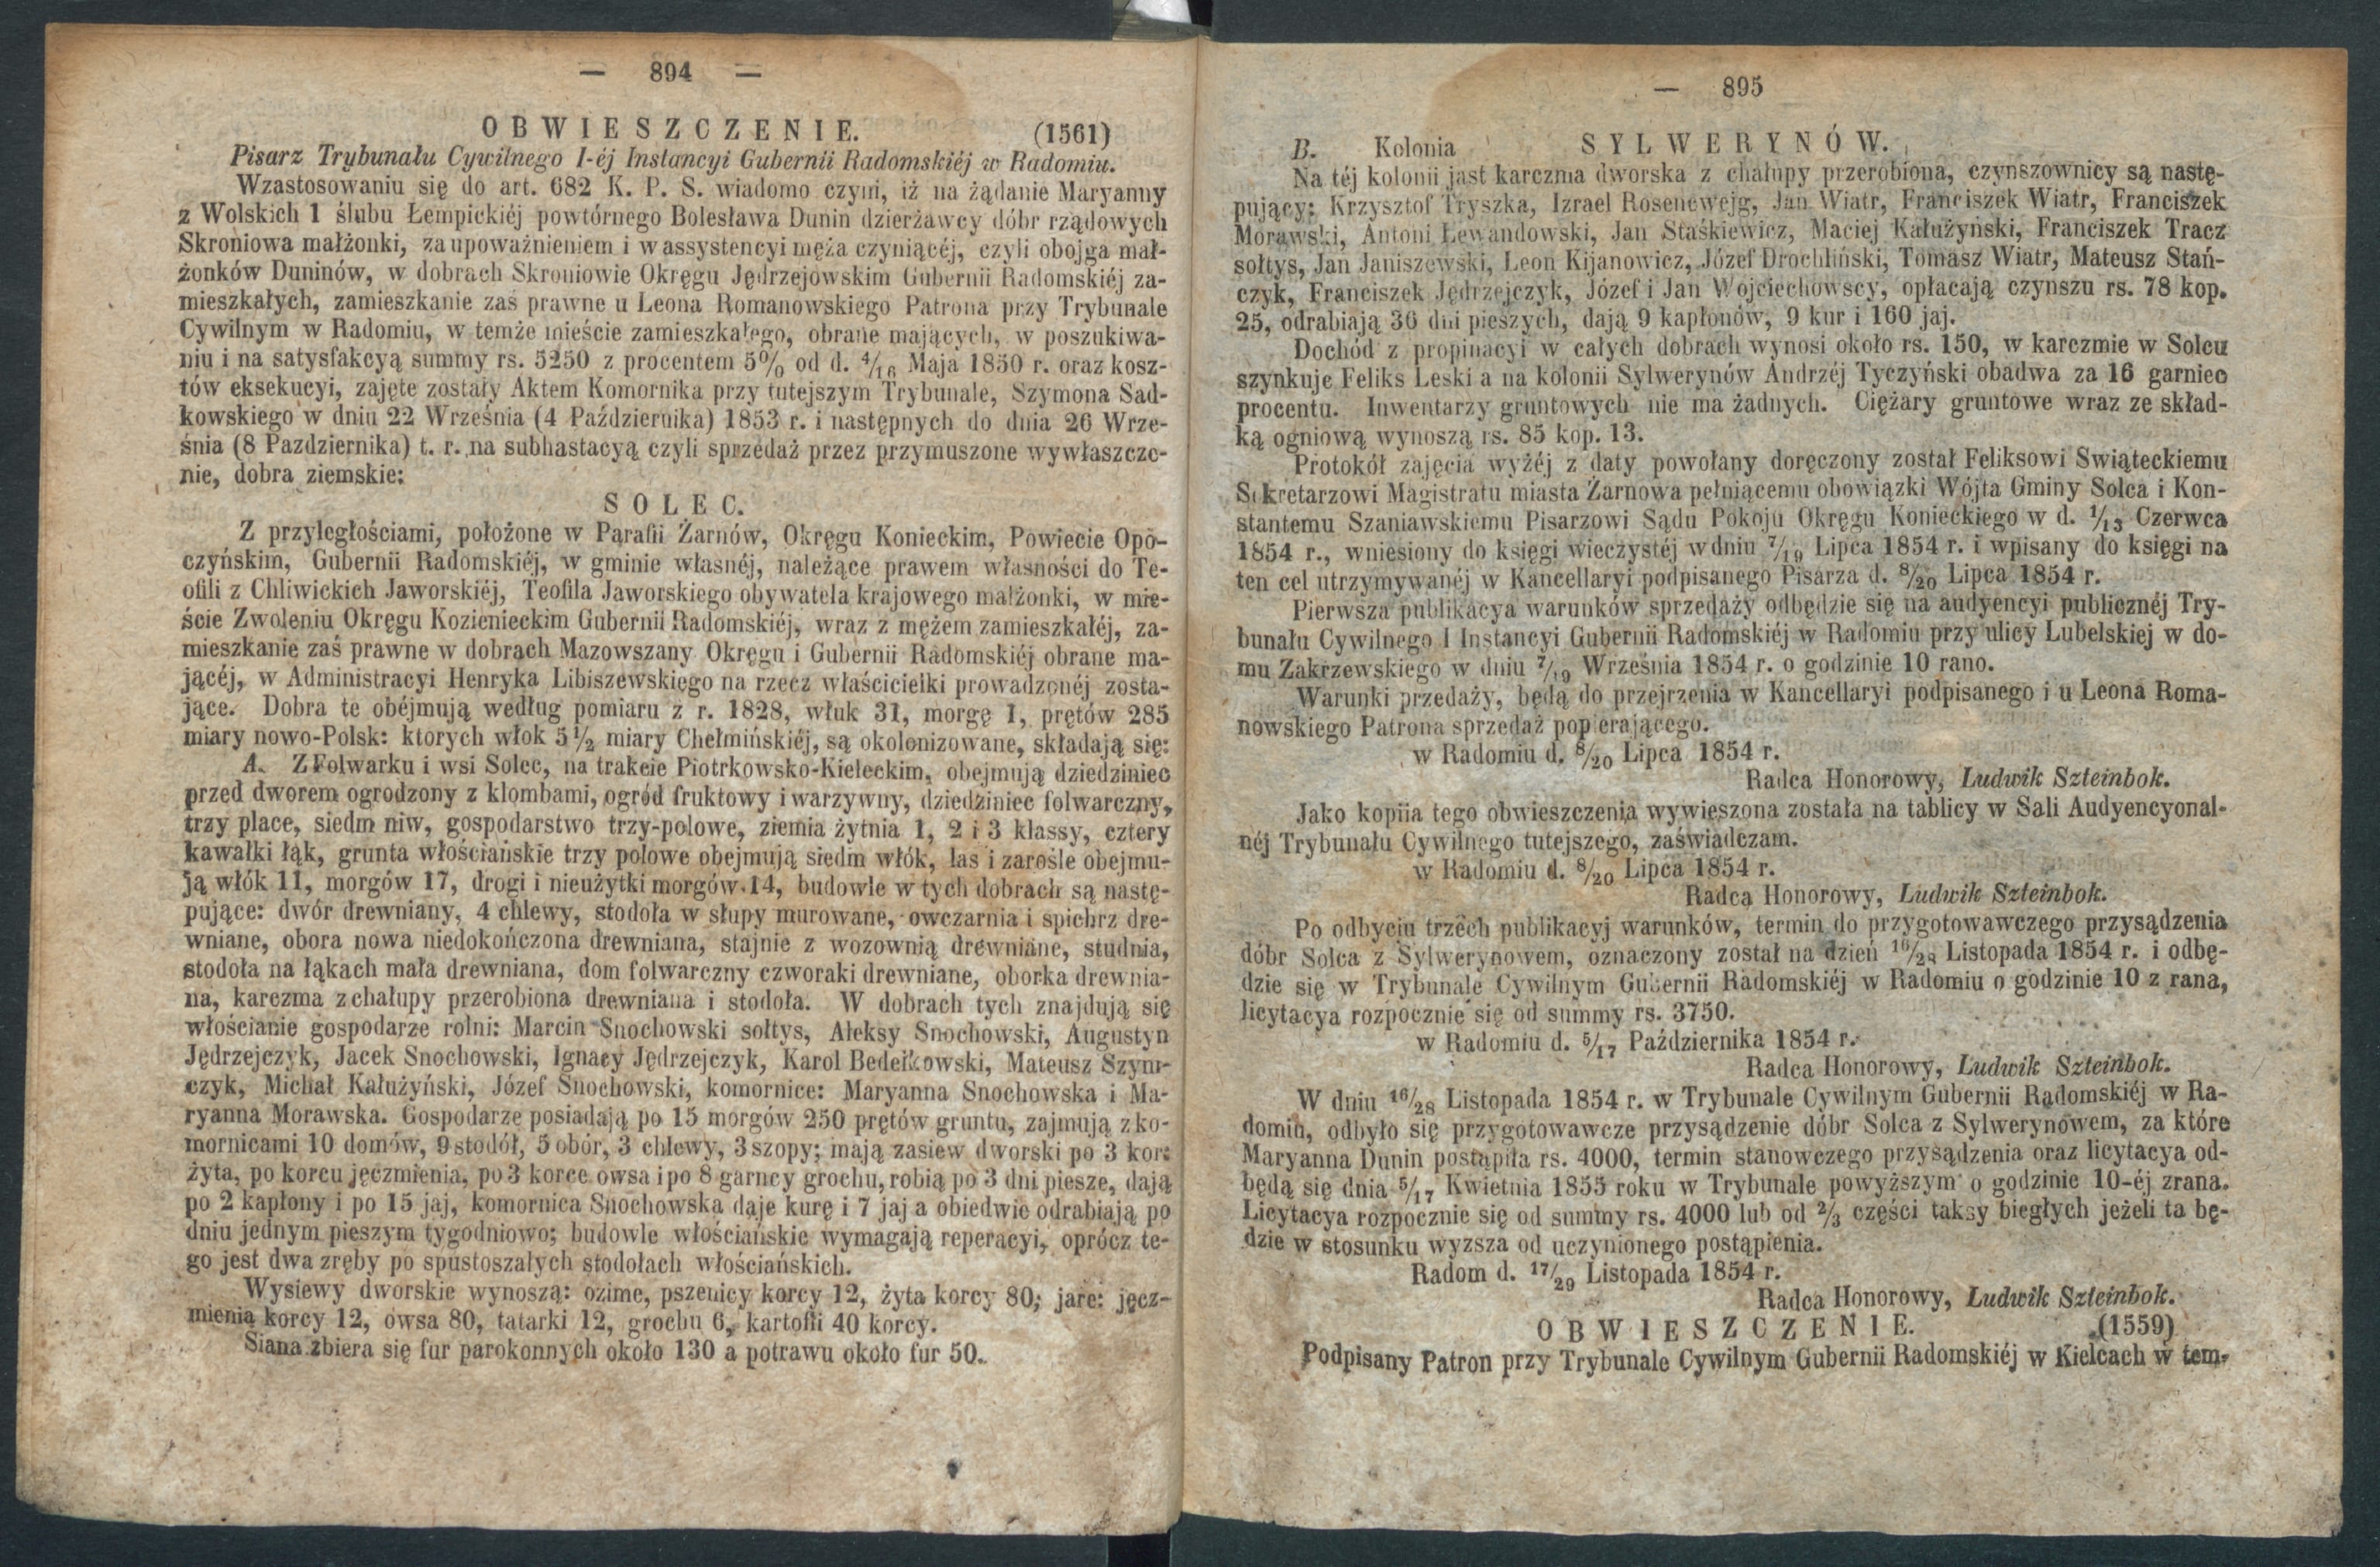 — 894 —
OBWIESZCZENIE. (1561)
Pisarz Trybunału Cywilnego I-éj Instancyi Gubernii Radomskiéj w Radomiu.
Wzastosowaniu się do art. 682 K. P. S. wiadomo czyni, iż na żądanie Maryanny
z Wolskich 1 ślubu Łempickiéj powtórnego Bolesława Dunin dzierżawcy dóbr rządowych
Skroniowa małżonki, za upoważnieniem i w assystencyi męża czyniącéj, czyli obojga mał-
żonków Duninów, w dobrach Skroniowie Okręgu Jędrzejowskim Gubernii Radomskiéj za-
mieszkałych, zamieszkanie zaś prawne u Leona Romanowskiego Patrona przy Trybunale
Cywilnym w Radomiu, w temże mieście zamieszkałego, obrane mających, w poszukiwa-
niu i na satysfakcyą summy rs. 5250 z procentem 5% od d. 4/16 Maja 1850 r. oraz kosz-
tów eksekucyi, zajęte zostały Aktem Komornika przy tutejszym Trybunale, Szymona Sad-
kowskiego w dniu 22 Września (4 Października) 1853 r. i następnych do dnia 26 Wrze-
śnia (8 Pazdziernika) t. r. na subhastacyą czyli sprzedaż przez przymuszone wywłaszcze-
nie, dobra ziemskie:
SOLEC.
Z przyległościami, położone w Parafii Żarnów, Okręgu Konieckim, Powiecie Opo-
czyńskim, Gubernii Radomskiéj, w gminie własnéj, należące prawem własności do Te-
ofili z Chliwickich Jaworskiéj, Teofila Jaworskiego obywatela krajowego małżonki, w mie-
ście Zwoleniu Okręgu Kozienieckim Gubernii Radomskiéj, wraz z mężem zamieszkałéj, za-
mieszkanie zaś prawne w dobrach Mazowszany Okręgu i Gubernii Radomskiéj obrane ma-
jącéj, w Administracyi Henryka Libiszewskiego na rzecz właścicielki prowadzonéj zosta-
jące. Dobra te obéjmują według pomiaru z r. 1828, włuk 31, morgę 1, prętów 285
miary nowo-Polsk: których włok 5½ miary Chełmińskiéj, są okolonizowane, składają się:
A. Z Folwarku i wsi Solec, na trakcie Piotrkowsko-Kieleckim, obejmują dziedziniec
przed dworem ogrodzony z klombami, ogród fruktowy i warzywny, dziedziniec folwarczny,
trzy place, siedm niw, gospodarstwo trzy-polowe, ziemia żytnia 1, 2 i 3 klassy, cztery
kawałki łąk, grunta włościańskie trzy polowe obejmują siedm włók, las i zarośle obejmu-
ją włók 11, morgów 17, drogi i nieużytki morgów 14, budowle w tych dobrach są nastę-
pujące: dwór drewniany, 4 chlewy, stodoła w słupy murowane, owczarnia i spichrz dre-
wniane, obora nowa niedokończona drewniana, stajnie z wozownią drewniane, studnia,
stodoła na łąkach mała drewniana, dom folwarczny czworaki drewniane, oborka drewnia-
na, karczma z chałupy przerobiona drewniana i stodoła. W dobrach tych znajdują się
włościanie gospodarze rolni: Marcin Snochowski sołtys, Aleksy Snochowski, Augustyn
Jędrzejczyk, Jacek Snochowski, Ignacy Jędrzejczyk, Karol Bedeńkowski, Mateusz Szym-
czyk, Michał Kałużyński, Józef Snochowski, komornice: Maryanna Snochowska i Ma-
ryanna Morawska. Gospodarze posiadają po 15 morgów 250 prętów gruntu, zajmują z ko-
mornicami 10 domów, 9 stodół, 5 obór, 3 chlewy, 3 szopy; mają zasiew dworski po 3 kor:
żyta, po korcu jęczmienia, po 3 korce owsa i po 8 garncy grochu, robią po 3 dni piesze, dają
po 2 kapłony i po 15 jaj, komornica Snochowska daje kurę i 7 jaj a obiedwie odrabiają po
dniu jednym pieszym tygodniowo; budowle włościańskie wymagają reperacyi, oprócz te-
go jest dwa zręby po spustoszałych stodołach włościańskich.
Wysiewy dworskie wynoszą: ozime, pszenicy korcy 12, żyta korcy 80; jare: jęcz-
mienia korcy 12, owsa 80, tatarki 12, grochu 6, kartofli 40 korcy.
Siana zbiera się fur parokonnych około 130 a potrawu około fur 50.
— 895
B. Kolonia SYLWERYNÓW.
Na téj kolonii jast karczma dworska z chałupy przerobiona, czynszownicy są nastę-
pujący: Krzysztof Tryszka, Izrael Rosencwejg, Jan Wiatr, Franciszek Wiatr, Franciszek
Morawski, Antoni Lewandowski, Jan Staśkiewicz, Maciej Kałużyński, Franciszek Tracz
sołtys, Jan Janiszewski, Leon Kijanowicz, Józef Drochliński, Tomasz Wiatr, Mateusz Stań-
czyk, Franciszek Jędrzejczyk, Józef i Jan Wojciechowscy, opłacają czynszu rs. 78 kop.
25, odrabiają 36 dni pieszych, dają 9 kapłonów, 9 kur i 160 jaj.
Dochód z propinacyi w całych dobrach wynosi około rs. 150, w karczmie w Solcu
szynkuje Feliks Leski a na kolonii Sylwerynów Andrzéj Tyczyński obadwa za 16 garniec
procentu. Inwentarzy gruntowych nie ma żadnych. Ciężary gruntowe wraz ze skład-
ką ogniową wynoszą rs. 85 kop. 13.
Protokół zajęcia wyżéj z daty powołany doręczony został Feliksowi Swiąteckiemu
Sekretarzowi Magistratu miasta Żarnowa pełniącemu obowiązki Wójta Gminy Solca i Kon-
stantemu Szaniawskiemu Pisarzowi Sądu Pokoju Okręgu Konieckiego w d. 1/13 Czerwca
1854 r., wniesiony do księgi wieczystéj w dniu 7/19 Lipca 1854 r. i wpisany do księgi na
ten cel utrzymywanéj w Kancellaryi podpisanego Pisarza d. 8/20 Lipca 1854 r.
Pierwsza publikacya warunków sprzedaży odbędzie się na audyencyi publicznéj Try-
bunału Cywilnego I Instancyi Gubernii Radomskiéj w Radomiu przy ulicy Lubelskiej w do-
mu Zakrzewskiego w dniu 7/19 Września 1854 r. o godzinie 10 rano.
Warunki przedaży, będą do przejrzenia w Kancellaryi podpisanego i u Leona Roma-
nowskiego Patrona sprzedaż popierającego.
w Radomiu d. 8/20 Lipca 1854 r.
Radca Honorowy, Ludwik Szteinbok.
Jako kopiia tego obwieszczenia wywieszona została na tablicy w Sali Audyencyonal-
néj Trybunału Cywilnego tutejszego, zaświadczam.
w Radomiu d. 8/20 Lipca 1854 r.
Radca Honorowy, Ludwik Szteinbok.
Po odbyciu trzech publikacyj warunków, termin do przygotowawczego przysądzenia
dóbr Solca z Sylwerynowem, oznaczony został na dzień 16/28 Listopada 1854 r. i odbę-
dzie się w Trybunale Cywilnym Gubernii Radomskiéj w Radomiu o godzinie 10 z rana,
licytacya rozpocznie się od summy rs. 3750.
w Radomiu d. 5/17 Października 1854 r.
Radca Honorowy, Ludwik Szteinbok.
W dniu 16/28 Listopada 1854 r. w Trybunale Cywilnym Gubernii Radomskiéj w Ra-
domiu, odbyło się przygotowawcze przysądzenie dóbr Solca z Sylwerynowem, za które
Maryanna Dunin postąpiła rs. 4000, termin stanowczego przysądzenia oraz licytacya od-
będą się dnia 5/17 Kwietnia 1855 roku w Trybunale powyższym o godzinie 10-éj zrana.
Licytacya rozpocznie się od summy rs. 4000 lub od ⅔ części taksy biegłych jeżeli ta bę-
dzie w stosunku wyzsza od uczynionego postąpienia.
Radom d. 17/29 Listopada 1854 r.
Radca Honorowy, Ludwik Szteinbok.
OBWIESZCZENIE. (1559)
Podpisany Patron przy Trybunale Cywilnym Gubernii Radomskiéj w Kielcach w tem-